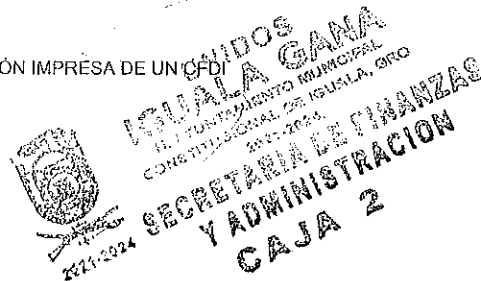 ÓN IMPRESA DE UN CFDI
UNIDOS
IGUALA GANA
H. AYUNTAMIENTO MUNICIPAL
CONSTITUCIONAL DE IGUALA, GRO
2021-2024
SECRETARIA DE FINANZAS
Y ADMINISTRACION
CAJA 2
2021-2024